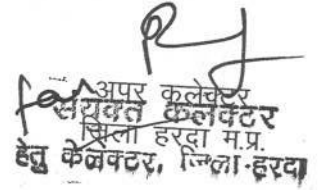 for अपर कलेक्टर
संयुक्त कलेक्टर
जिला हरदा म.प्र.
हेतु कलेक्टर, जिला-हरदा